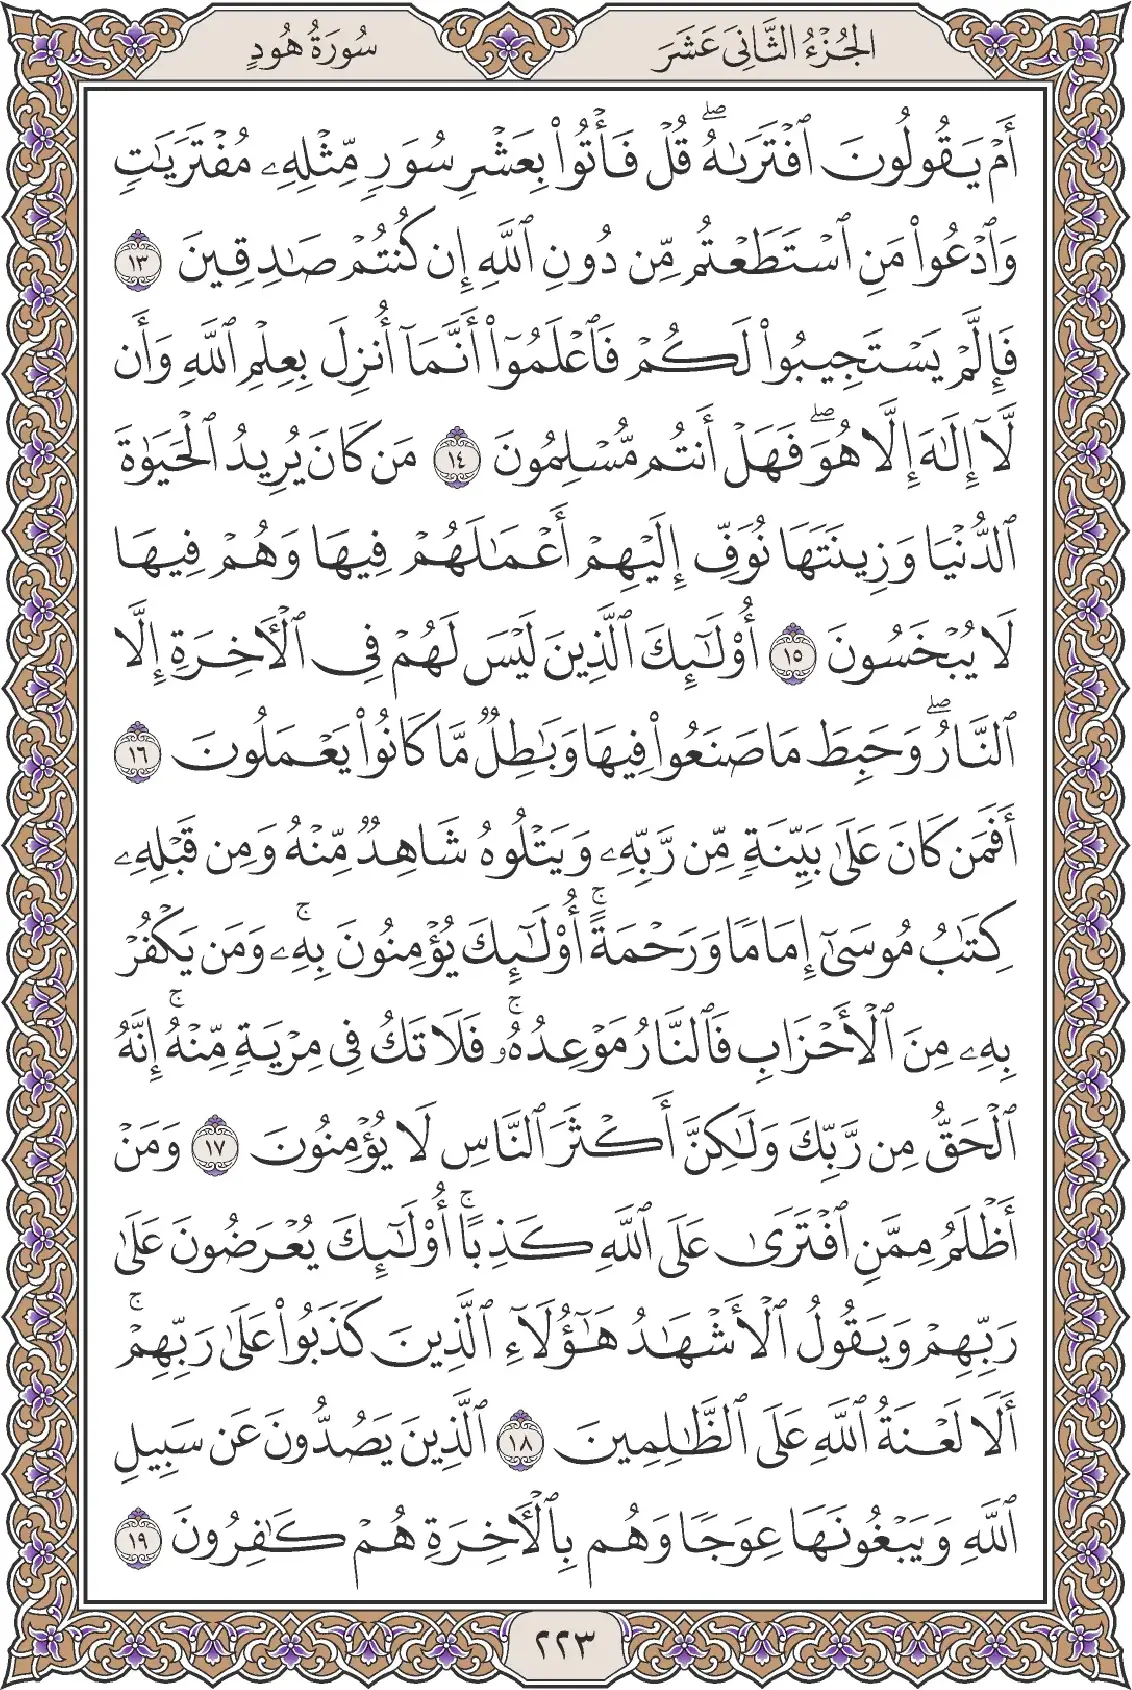 الجُزْءُ الثَّانِي عَشَرَ
سُورَةُ هُودٍ
أَمْ يَقُولُونَ ٱفْتَرَىٰهُۖ قُلْ فَأْتُوا۟ بِعَشْرِ سُوَرٍ مِّثْلِهِۦ مُفْتَرَيَٰتٍ
وَٱدْعُوا۟ مَنِ ٱسْتَطَعْتُم مِّن دُونِ ٱللَّهِ إِن كُنتُمْ صَٰدِقِينَ ١٣
فَإِلَّمْ يَسْتَجِيبُوا۟ لَكُمْ فَٱعْلَمُوٓا۟ أَنَّمَآ أُنزِلَ بِعِلْمِ ٱللَّهِ وَأَن
لَّآ إِلَٰهَ إِلَّا هُوَۖ فَهَلْ أَنتُم مُّسْلِمُونَ ١٤ مَن كَانَ يُرِيدُ ٱلْحَيَوٰةَ
ٱلدُّنْيَا وَزِينَتَهَا نُوَفِّ إِلَيْهِمْ أَعْمَٰلَهُمْ فِيهَا وَهُمْ فِيهَا
لَا يُبْخَسُونَ ١٥ أُو۟لَٰٓئِكَ ٱلَّذِينَ لَيْسَ لَهُمْ فِي ٱلْأَخِرَةِ إِلَّا
ٱلنَّارُۖ وَحَبِطَ مَا صَنَعُوا۟ فِيهَا وَبَٰطِلٌ مَّا كَانُوا۟ يَعْمَلُونَ ١٦
أَفَمَن كَانَ عَلَىٰ بَيِّنَةٍ مِّن رَّبِّهِۦ وَيَتْلُوهُ شَاهِدٌ مِّنْهُ وَمِن قَبْلِهِۦ
كِتَٰبُ مُوسَىٰٓ إِمَامًا وَرَحْمَةًۚ أُو۟لَٰٓئِكَ يُؤْمِنُونَ بِهِۦۚ وَمَن يَكْفُرْ
بِهِۦ مِنَ ٱلْأَحْزَابِ فَٱلنَّارُ مَوْعِدُهُۥۚ فَلَا تَكُ فِي مِرْيَةٍ مِّنْهُۚ إِنَّهُ
ٱلْحَقُّ مِن رَّبِّكَ وَلَٰكِنَّ أَكْثَرَ ٱلنَّاسِ لَا يُؤْمِنُونَ ١٧ وَمَنْ
أَظْلَمُ مِمَّنِ ٱفْتَرَىٰ عَلَى ٱللَّهِ كَذِبًاۚ أُو۟لَٰٓئِكَ يُعْرَضُونَ عَلَىٰ
رَبِّهِمْ وَيَقُولُ ٱلْأَشْهَٰدُ هَٰٓؤُلَآءِ ٱلَّذِينَ كَذَبُوا۟ عَلَىٰ رَبِّهِمْۚ
أَلَا لَعْنَةُ ٱللَّهِ عَلَى ٱلظَّٰلِمِينَ ١٨ ٱلَّذِينَ يَصُدُّونَ عَن سَبِيلِ
ٱللَّهِ وَيَبْغُونَهَا عِوَجًا وَهُم بِٱلْأَخِرَةِ هُمْ كَٰفِرُونَ ١٩
٢٢٣